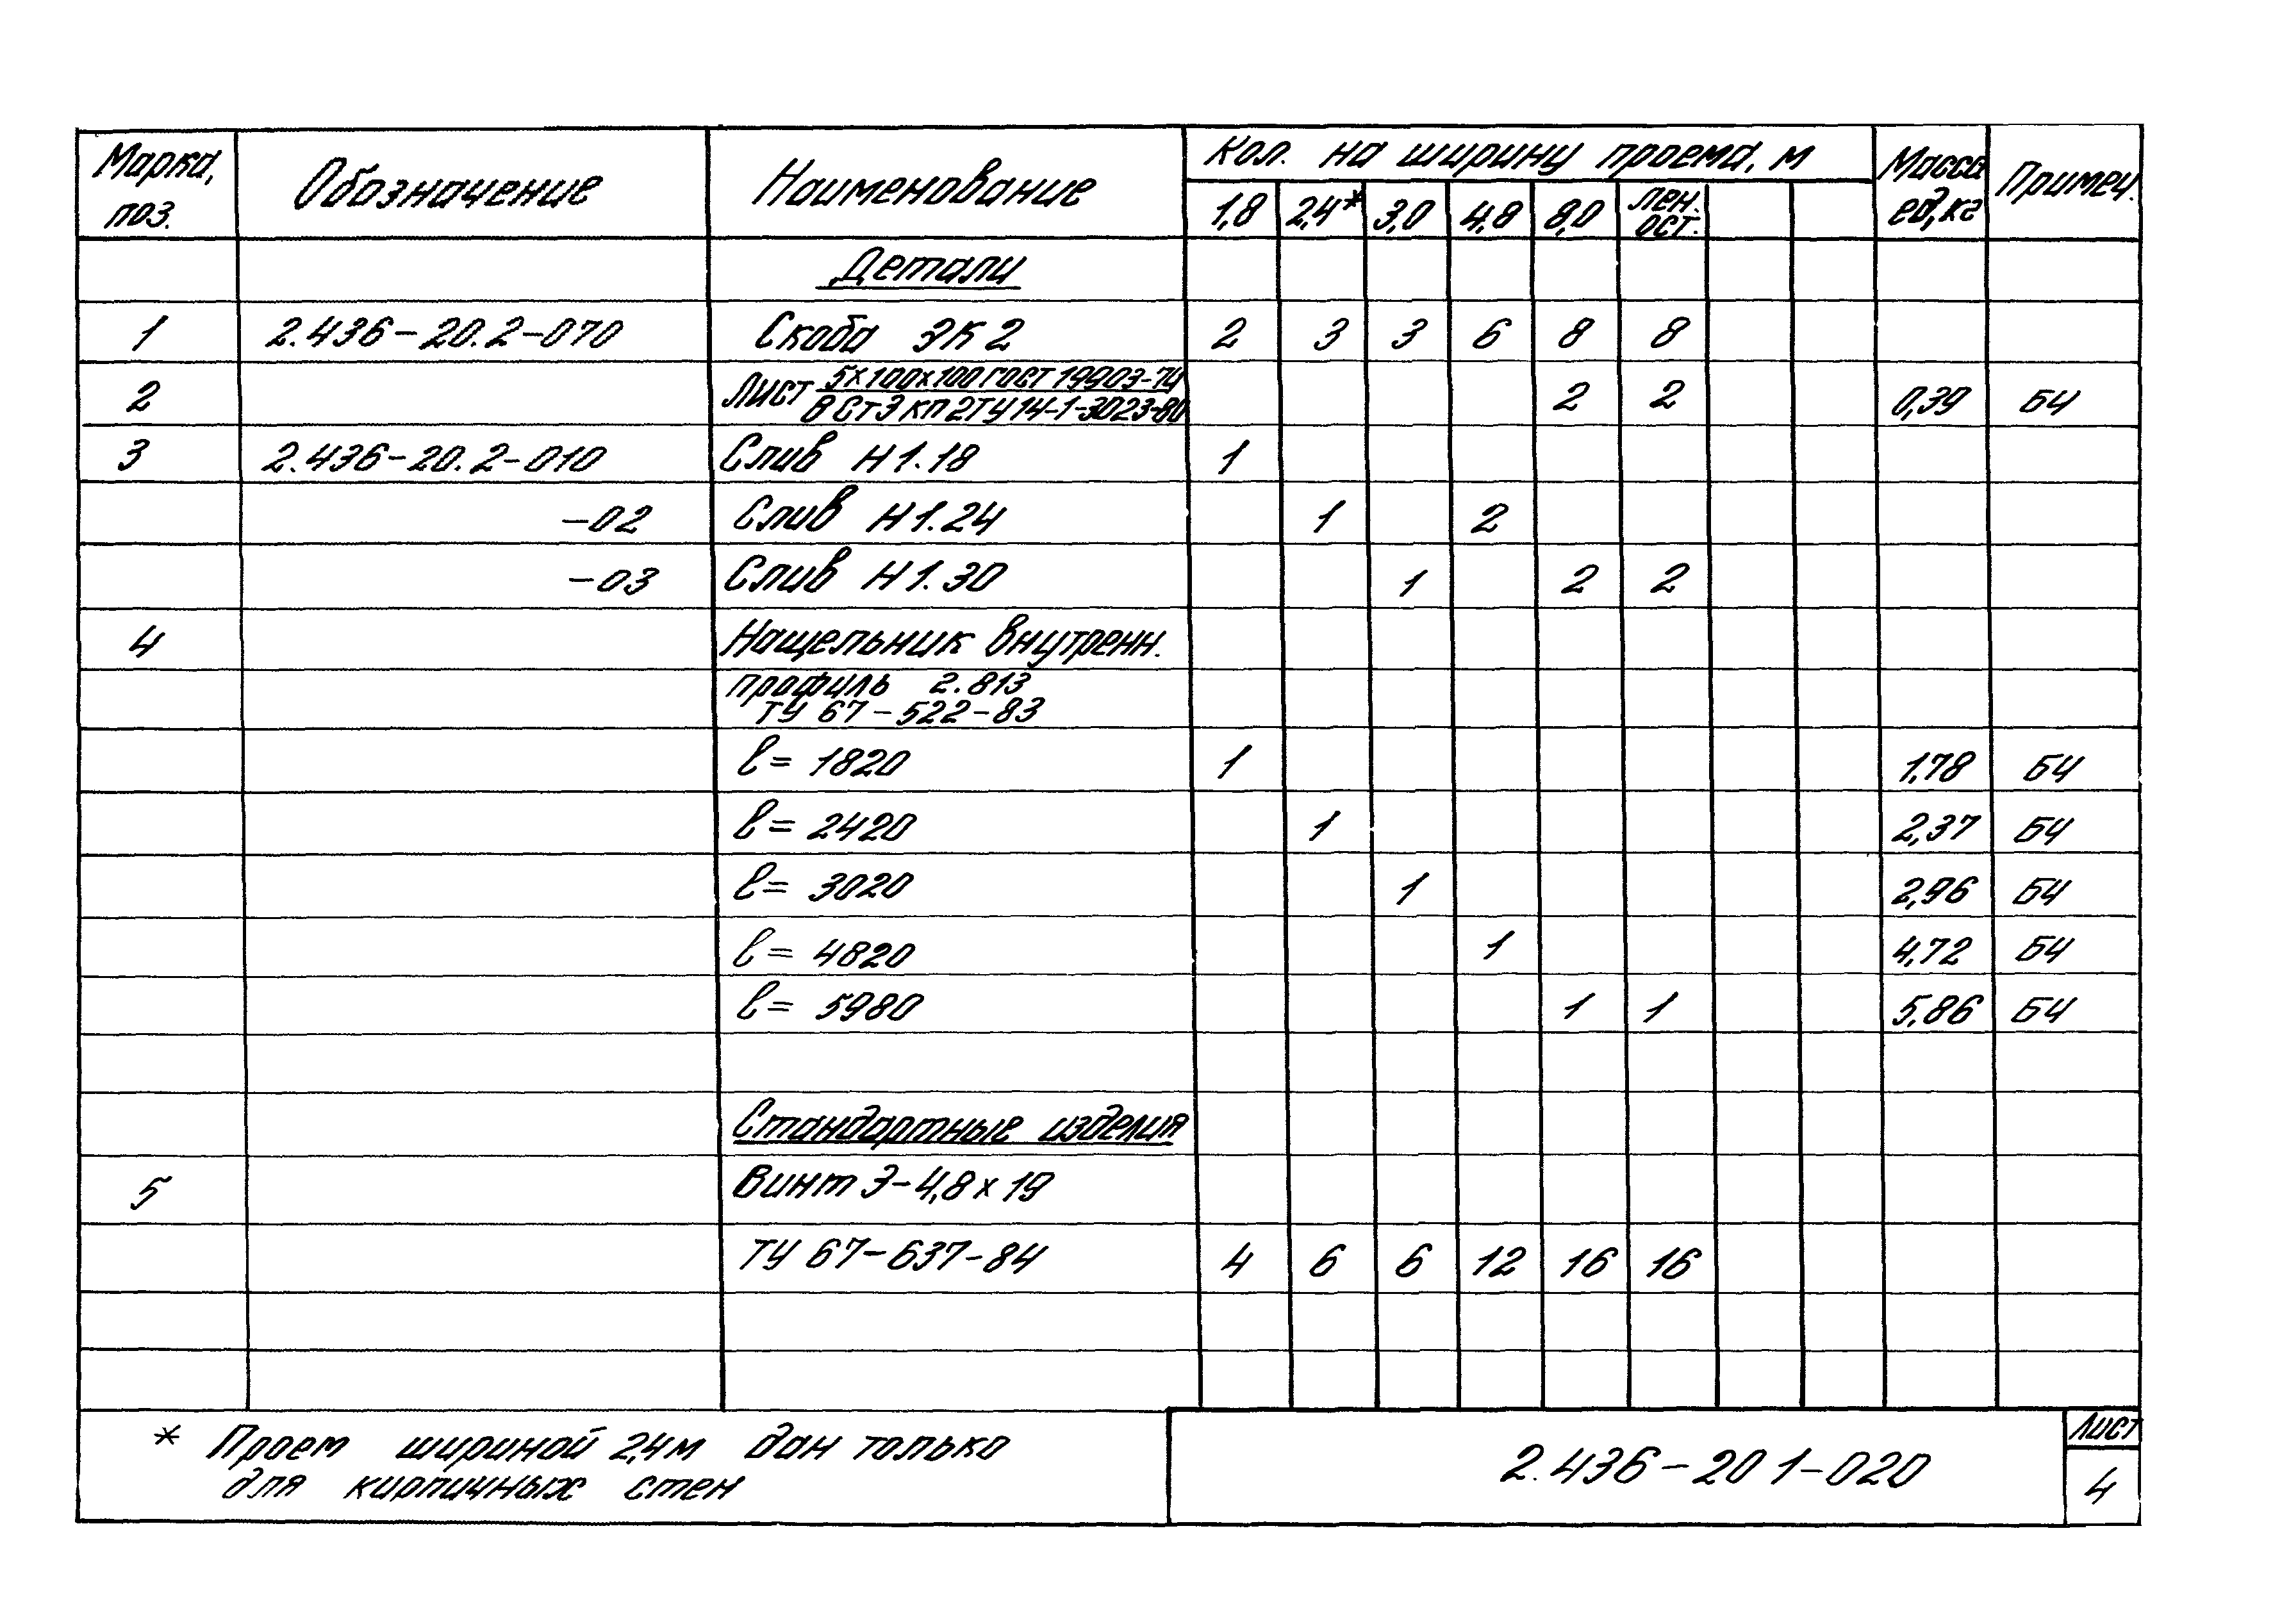 Марка, поз. Обозначение Наименование Кол. на ширину проема, м Масса ед, кг Примеч.
1,8 2,4* 3,0 4,8 8,0 лен. ост.
Детали
1 2.436-20.2-070 Скоба ЭК2 2 3 3 6 8 8
2 Лист 5х100х100 ГОСТ 19903-74 2 2 0,39 БЧ
В Ст3 кп 2 ТУ 14-1-3023-80
3 2.436-20.2-010 Слив Н1.18 1
-02 Слив Н1.24 1 2
-03 Слив Н1.30 1 2 2
4 Нащельник внутренн.
профиль 2.813
ТУ 67-522-83
ℓ= 1820 1 1,78 БЧ
ℓ= 2420 1 2,37 БЧ
ℓ= 3020 1 2,96 БЧ
ℓ= 4820 1 4,72 БЧ
ℓ= 5980 1 1 5,86 БЧ
Стандартные изделия
5 Винт 3-4,8х19
ТУ 67-637-84 4 6 6 12 16 16
* Проем шириной 2,4м дан только
для кирпичных стен
2.436-20 1-020
Лист
4